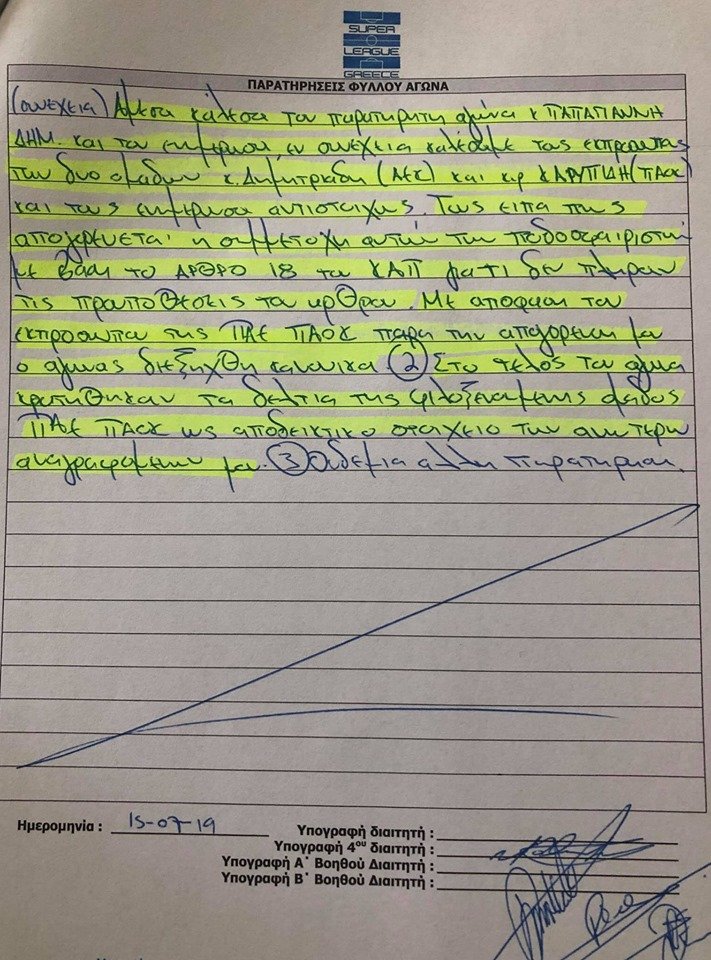 SUPER
LEAGUE
GREECE
ΠΑΡΑΤΗΡΗΣΕΙΣ ΦΥΛΛΟΥ ΑΓΩΝΑ
(συνεχεια) Αμεσα καλεσα τον παρατηρητη αγωνα κ ΠΑΠΑΠΑΝΝΗ
ΔΗΜ. και τον ενημερωσα εν συνεχεια καλεσαμε τους εκπροσωπους
των δυο ομαδων κ. Δημητριαδη (ΑΕΚ) και κρ ΚΑΡΥΠΙΔΗ (ΠΑΟΚ)
και τους ενημερωσα αντιστοιχως. Τους ειπα πως
απαγορευεται η συμμετοχη αυτων των ποδοσφαιριστων
με βαση το ΑΡΘΡΟ 18 του ΚΑΠ γιατι δεν πληρουν
τις προυποθεσεις του αρθρου. Με αποφαση του
εκπροσωπου της ΠΑΕ ΠΑΟΚ παρα την απαγορευση μου
ο αγωνας διεξηχθη κανονικα (2) Στο τελος του αγωνα
κρατηθηκαν τα δελτια της φιλοξεναμενης ομαδος
ΠΑΕ ΠΑΟΚ ως αποδεικτικο στοιχειο των ανωτερω
αναγραφομενων μου. (3) Ουδεμια αλλη παρατηρηση.
Ημερομηνια : 15-07-19
Υπογραφή διαιτητή :
Υπογραφή 4ου διαιτητή :
Υπογραφή Α΄ Βοηθού Διαιτητή :
Υπογραφή Β΄ Βοηθού Διαιτητή :